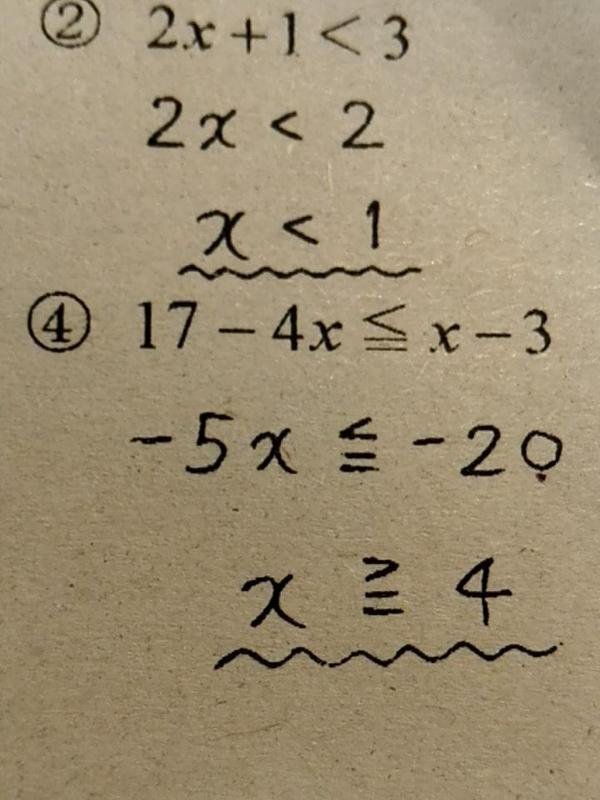 ② 2x+1<3
2x < 2
x < 1
④ 17-4x≦x-3
-5x ≦ -20
x ≧ 4